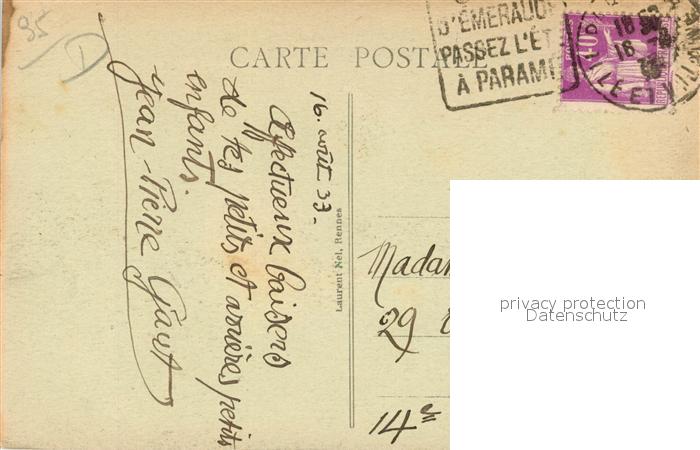 95
D
CARTE POSTALE
D'ÉMERAUDE
PASSEZ L'ÉT
À PARAMÉ
16. août 33_
Affectueux baisers
de tes petits et arrières petits
enfants.
Jean-Pierre
Laurent Nel, Rennes
Madam
29
14e
privacy protection
Datenschutz